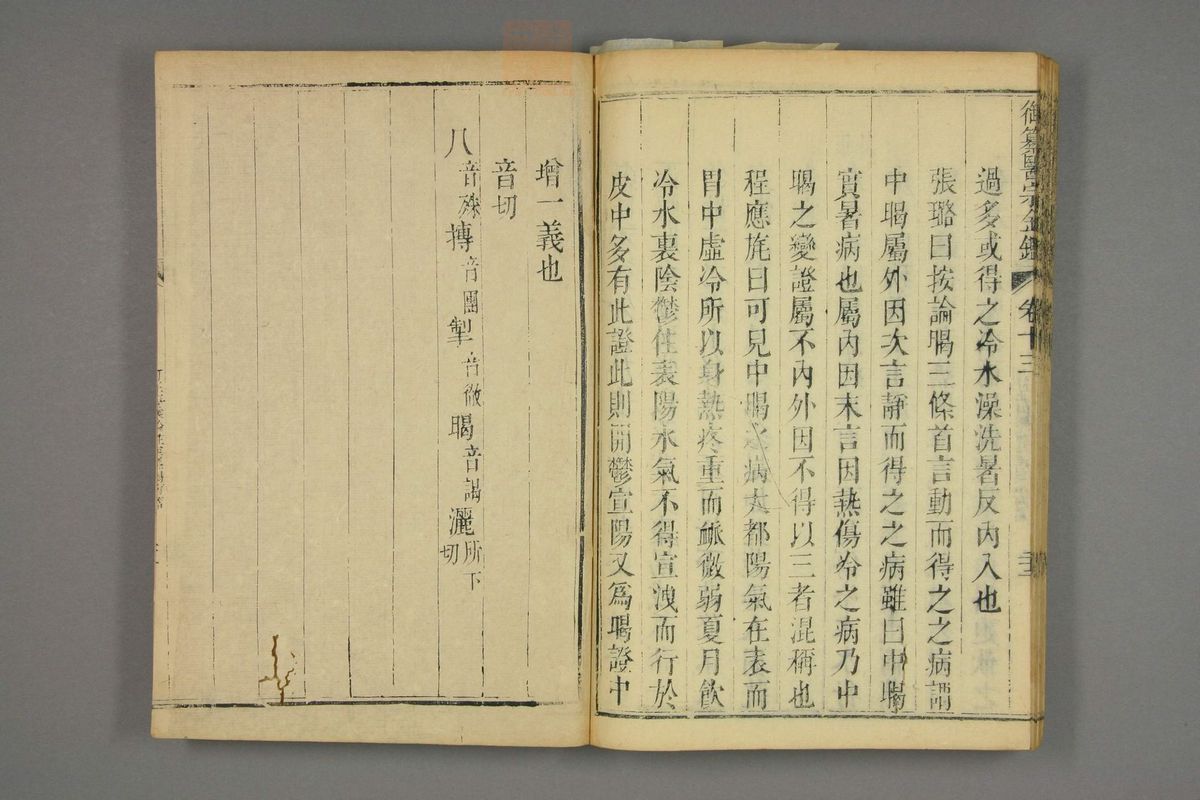 御纂醫宗金鑑 卷十三
過多或得之冷水澡洗暑反內入也
張璐曰按論暍三條首言動而得之之病謂
中暍屬外因次言靜而得之之病雖曰中暍
實暑病也屬內因末言因熱傷冷之病乃中
暍之變證屬不內外因不得以三者混稱也
程應旄曰可見中暍之病大都陽氣在表而
胃中虛冷所以身熱疼重而脈微弱夏月飲
冷水裏陰鬱住表陽水氣不得宣洩而行於
皮中多有此證此則開鬱宣陽又為暍證中
增一義也
音切
八音殊 摶音團 掣音徹 暍音謁 灑所下切